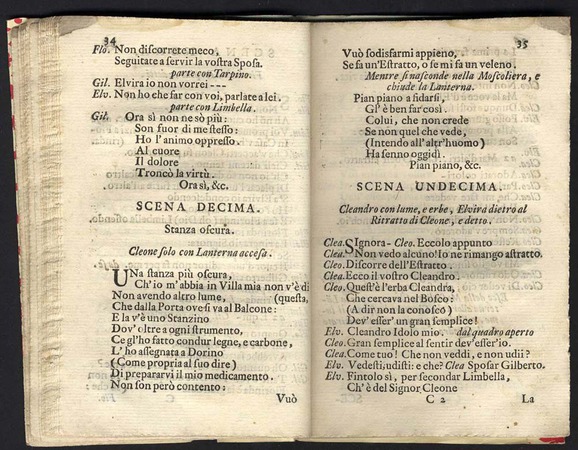 34
Flo. Non discorrete meco.
Seguitate a servir la vostra Sposa.
parte con Tarpino.
Gil. Elvira io non vorrei ---
Elv. Non ho che far con voi, parlate a lei.
parte con Limbella.
Gil. Ora sì non ne sò più:
Son fuor di me stesso:
Ho l'animo oppresso.
Al cuore
Il dolore
Troncò la virtù.
Ora sì, &c.
SCENA DECIMA.
Stanza oscura.
Cleone solo con Lanterna accesa.
UNa stanza più oscura,
Ch'io m'abbia in Villa mia non v'è di
Non avendo altro lume, (questa,
Che dalla Porta ove si va al Balcone:
E la v'è uno Stanzino
Dov'oltre a ogni strumento,
Ce gl'ho fatto condur legne, e carbone,
L'ho assegnata a Dorino
(Come propria al suo dire)
Di prepararvi il mio medicamento.
Non son però contento:
C
Vuò
35
Vuò sodisfarmi appieno,
Se fa un'Estratto, o se mi fa un veleno.
Mentre si nasconde nella Moscoliera, e
chiude la Lanterna.
Pian piano a fidarsi,
Gl'è ben far così.
Colui, che non crede
Se non quel che vede,
(Intendo all'altr'huomo)
Ha senno oggidì.
Pian piano, &c.
SCENA UNDECIMA.
Cleandro con lume, e erbe, Elvira dietro al
Ritratto di Cleone, e detto.
Clea. SIgnora - Cleo. Eccolo appunto
Clea. Non vedo alcuno! Io ne rimango astratto.
Cleo. Discorre dell'Estratto.
Clea. Ecco il vostro Cleandro.
Cleo. Quest'è l'erba Cleandra,
Che cercava nel Bosco:
(A dir non la conosco)
Dev'esser un gran semplice!
Elv. Cleandro Idolo mio. dal quadro aperto
Cleo. Gran semplice al sentir dev'esser'io.
Clea. Come tuo! Che non veddi, e non udii?
Elv. Vedesti, udisti: e che? Clea Sposar Gilberto.
Elv. Finto lo sì, per secondar Limbella,
Ch'è del Signor Cleone
C 2
La